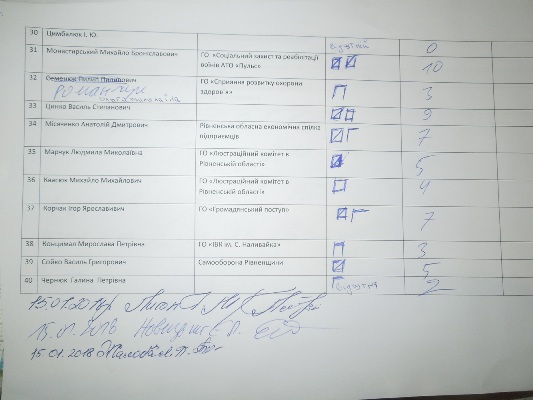 30 Цимбалюк І. Ю. відутній 0
31 Монастирський Михайло Броніславович ГО «Соціальний захист та реабілітації
воїнів АТО «Пульс» 10
32 Семенюк Пилип Пилипович ГО «Сприяння розвитку охорони
здоров'я» 3
Романчук
33 Цинко Василь Степанович 9
34 Місяченко Анатолій Дмитрович Рівненська обласна економічна спілка
підприємців 7
35 Марчук Людмила Миколаївна ГО «Люстраційний комітет в
Рівненській області» 5
36 Квасюк Михайло Михайлович ГО «Люстраційний комітет в
Рівненській області» 4
37 Корчак Ігор Ярославович ГО «Громадянський поступ» 7
38 Концимал Мирослава Петрівна ГО «ІВК ім. С. Наливайка» 3
39 Сойко Василь Григорович Самооборона Рівненщини 5
40 Чернюк Галина Петрівна відутня 2
15.01.2018р.
15.01.2018
15.01.2018